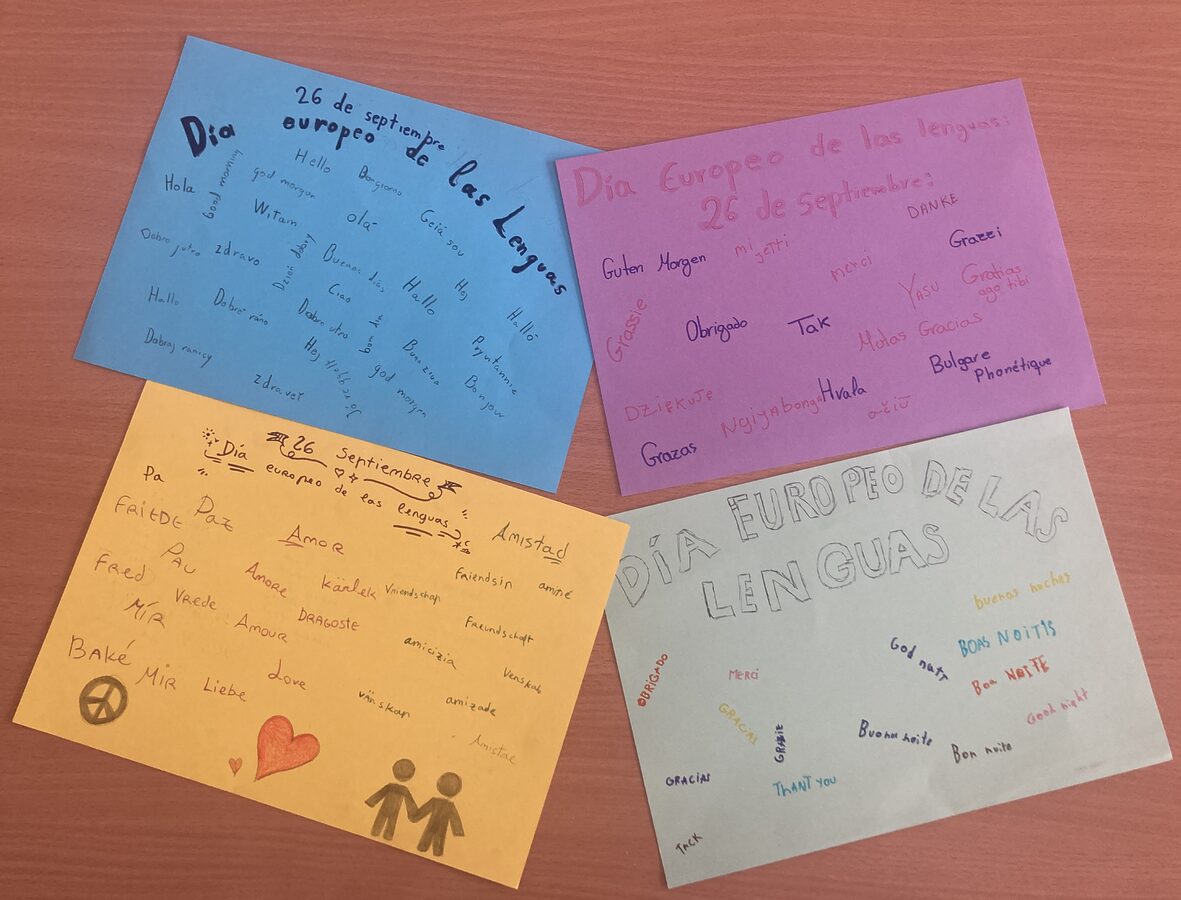 26 de septiembre
Día europeo de las Lenguas
Hello
Hola
good morning
god morgen
Witam
olá
Geiá sou
Dobro jutro
zdravo
Dzień dobry
Buenos días
Hallo
Hej
Halló
Hallo
Dobré ráno
Ciao
Dobro utro
Buna ziua
Bonjour
Dobraj ranicy
Hej
god morgen
zdraveť
Día Europeo de las lenguas:
26 de septiembre:
DANKE
Guten Morgen
mi
jetti
merci
Grazzi
Grassie
Obrigado
Tak
Yasu
Gratias
ago tibi
Mulas Gracias
Bulgare
Phonétique
Dziękuje
Ngiyabonga
Hvala
ačiū
Grazas
26 Septiembre
Día europeo de las lenguas
Pa
FRIEDE
Paz
Amor
Amistad
Fred
Pau
Amore
kärlek
Vriendschap
Friendsin
amitié
MÍR
Vrede
Amour
DRAGOSTE
Freundschaft
Baké
MIR
Liebe
Love
amicizia
Venskab
vänskap
amizade
Amistac
DÍA EUROPEO DE LAS
LENGUAS
buenas noches
BOAS NOITIS
God natt
Boa NOITE
Good night
OBRIGADO
Merci
GRACIAS
GRAZIE
Buona noite
Bon noite
GRACIAS
THANT YOU
TACK